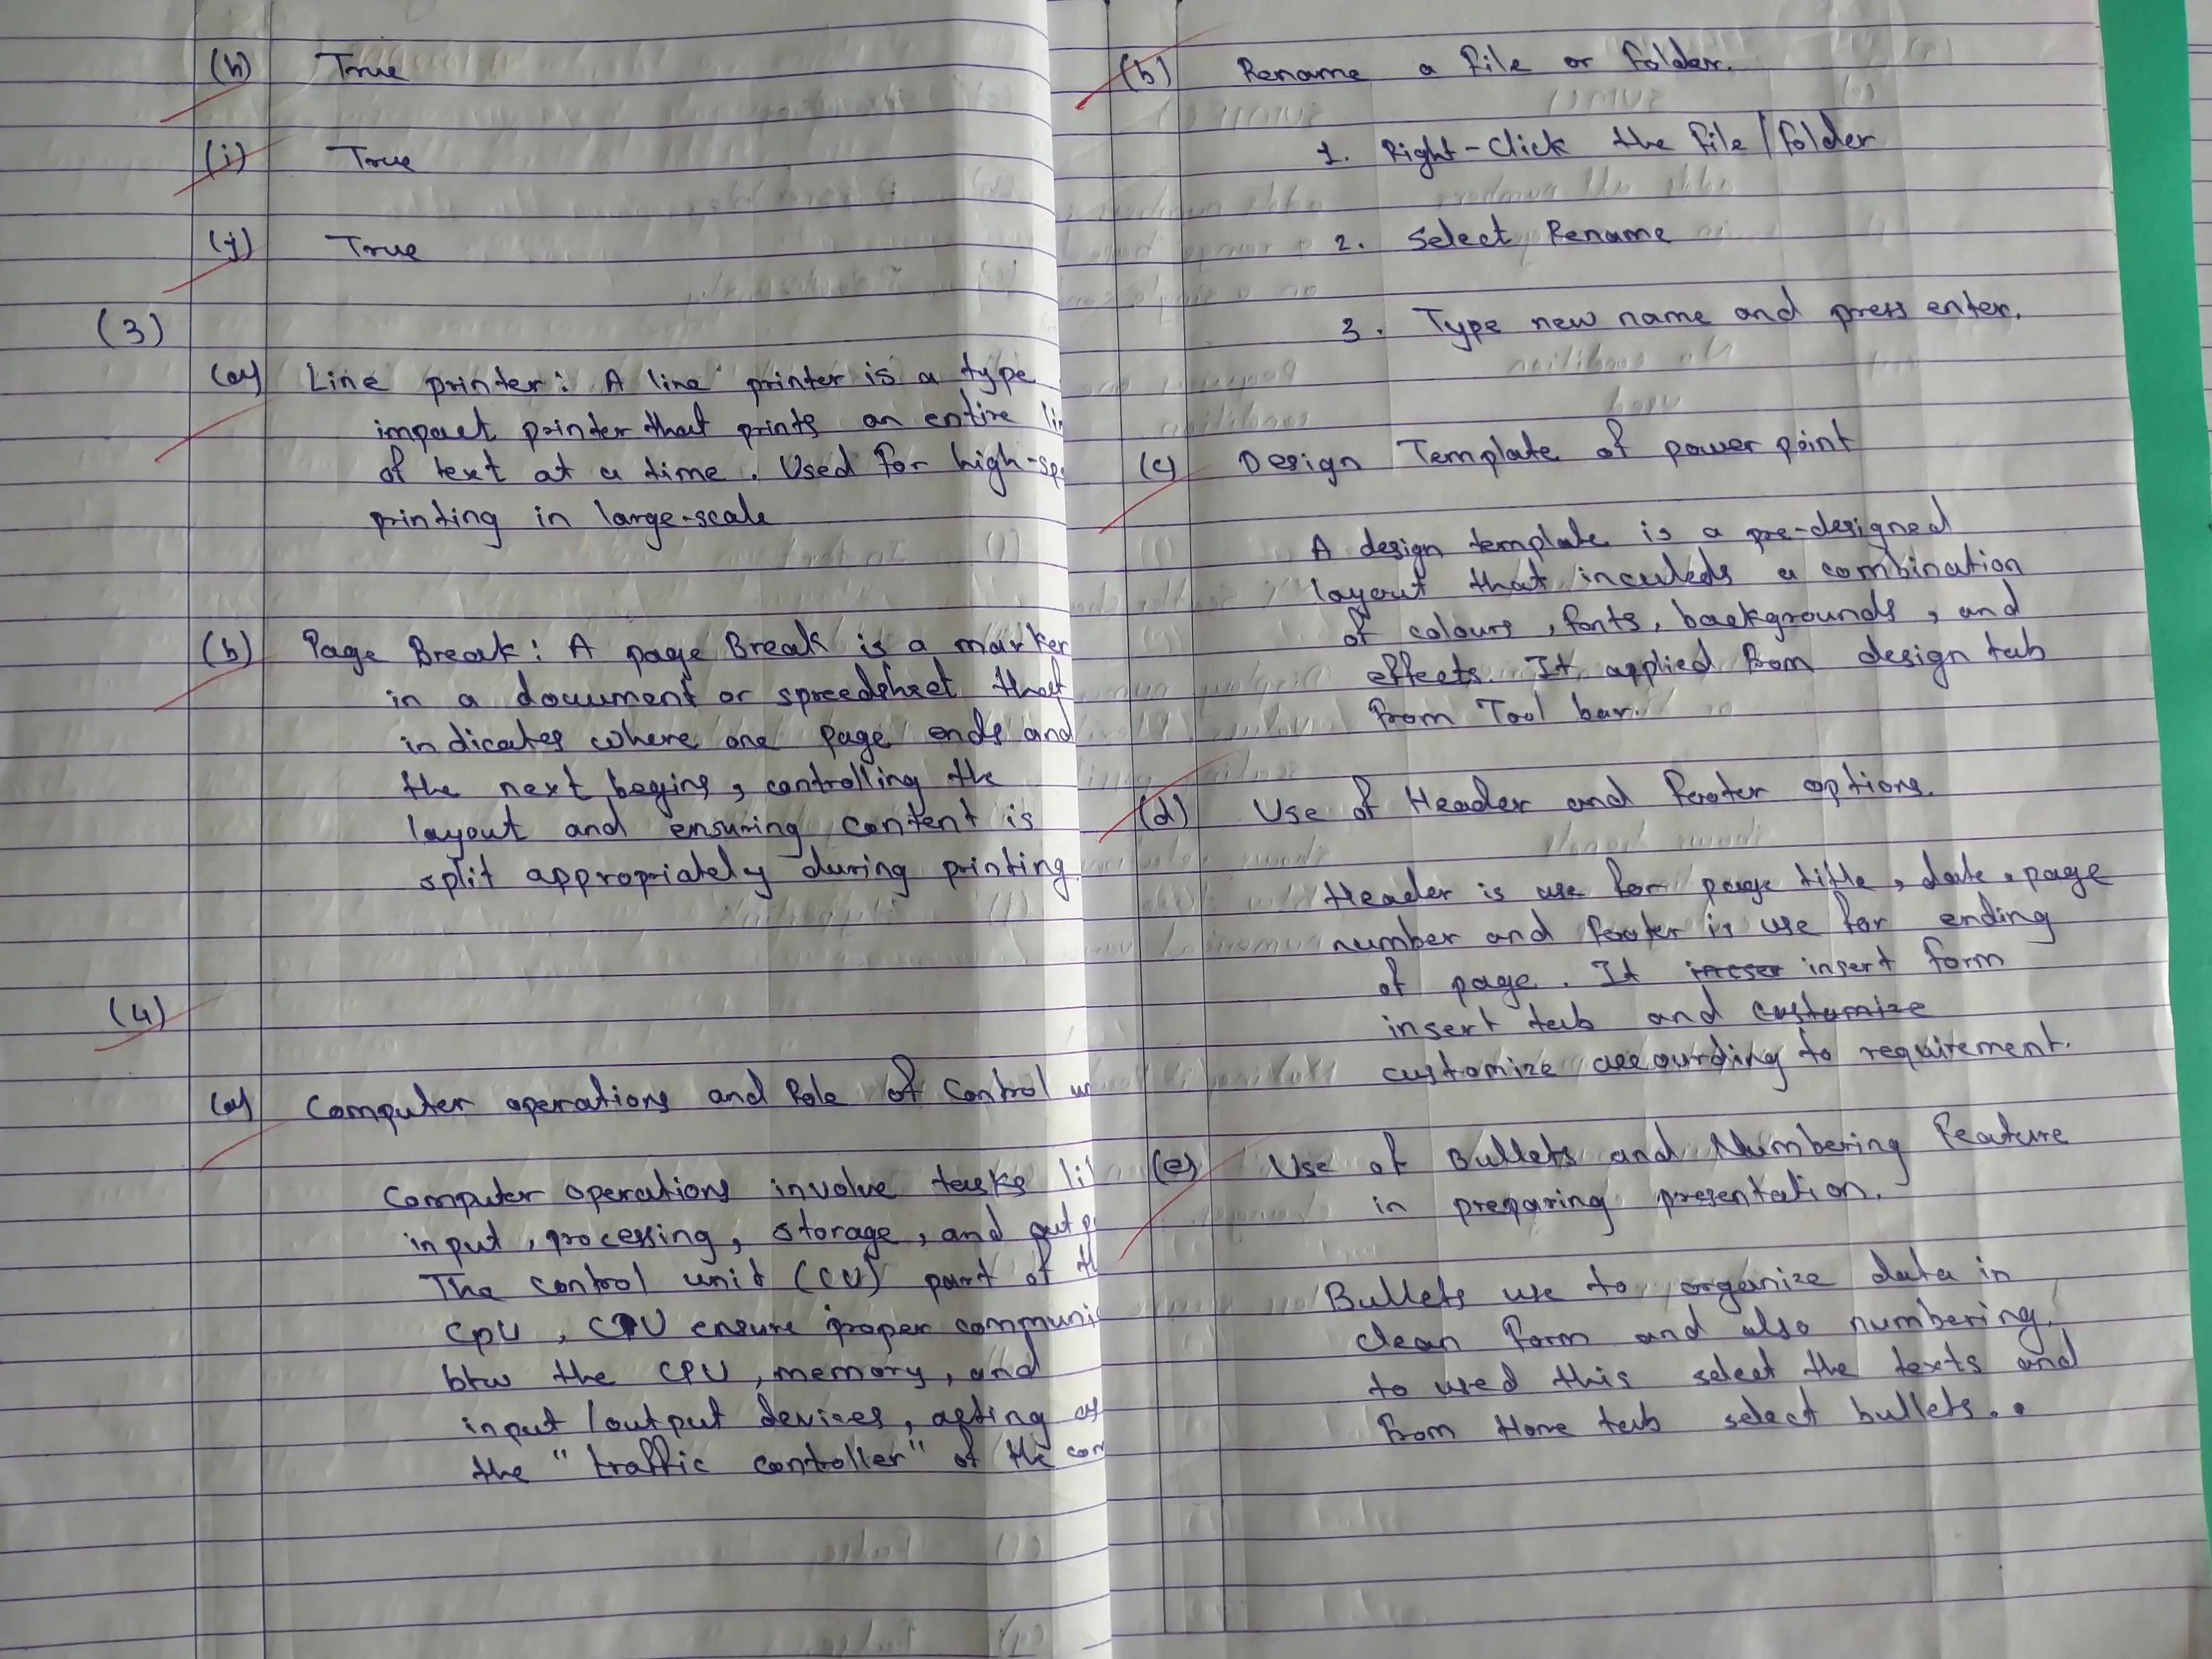 (h) True
(i) True
(j) True
(3)
(a) Line printer: A line printer is a type
impact printer that prints an entire
of text at a time. Used for high-sp
printing in large-scale
(b) Page Break: A page Break is a marker
in a document or spreedsheet that
indicates where one page ends and
the next begins, controlling the
layout and ensuring content is
split appropriately during printing
(4)
(a) Computer operations and Role of Control
Computer operations involve tasks
input, processing, storage, and
The control unit (CU) part of
CPU, CPU ensure proper communi
btw the CPU, memory, and
input/output devices, acting as
the "traffic controller" of the
(b) Rename a file or folder.
1. Right-Click the file/folder
2. Select Rename
3. Type new name and press enter.
(c) Design Template of power point
A design template is a pre-designed
layout that inculeds a combination
of colours, fonts, backgrounds, and
effects. It applied from design tab
from Tool bar.
(d) Use of Header and footer options.
Header is use for page title, date, page
number and footer is use for ending
of page. It insert form
insert tab and customize
customize accourding to requirement.
(e) Use of Bullets and Numbering Feature
in preparing presentation.
Bullets use to organize data in
clean form and also numbering.
to used this select the texts and
from Home tab select bullets..